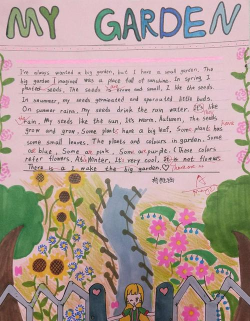 MY GARDEN
I've always wanted a big garden, but I have a small garden. The
big garden I imagined was a place full of sunshine. In spring I
planted seeds. The seeds is brown and small, I like the seeds.
In summer, my seeds germinated and sprouted little buds.
On summer rains, My seeds drink the rain water. It's like
rain, My seeds like the sun, It's warm, Autumn, The seeds
grow and grow, Some plants have a big leaf, Some plants has have
some small leaves, The plants and colours in garden. Some
are blue, Some are pink, Some are purple. (These colors
refer flowers, At Winter, It's very cool, It is not flower.
There is a I make the big garden. There are no